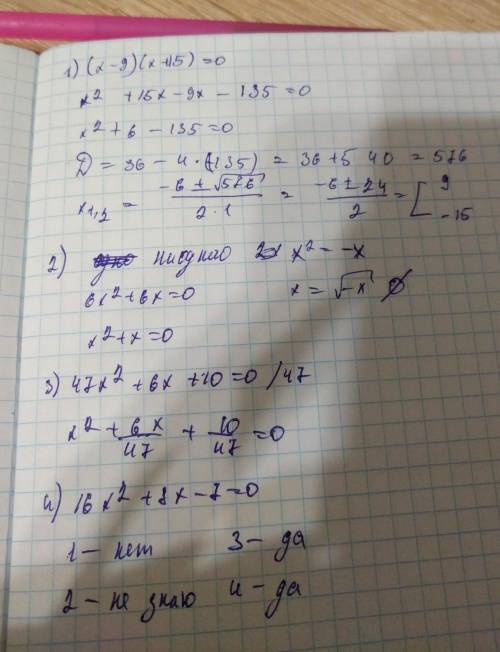 1) (x-9)(x+15)=0
x² +15x-9x-135=0
x²+6-135=0
D=36-4·(-135)=36+540=576
x₁,₂ = (-6±√576)/(2·1) = (-6±24)/2 = [ 9 -15
2) x²=-x
6x²+6x=0 x=√-x ∅
x²+x=0
3) 47x²+6x+10=0 /47
x²+6x/47+10/47=0
4) 16x²+8x-7=0
1 - нет 3 - да
2 - не знаю 4 - да